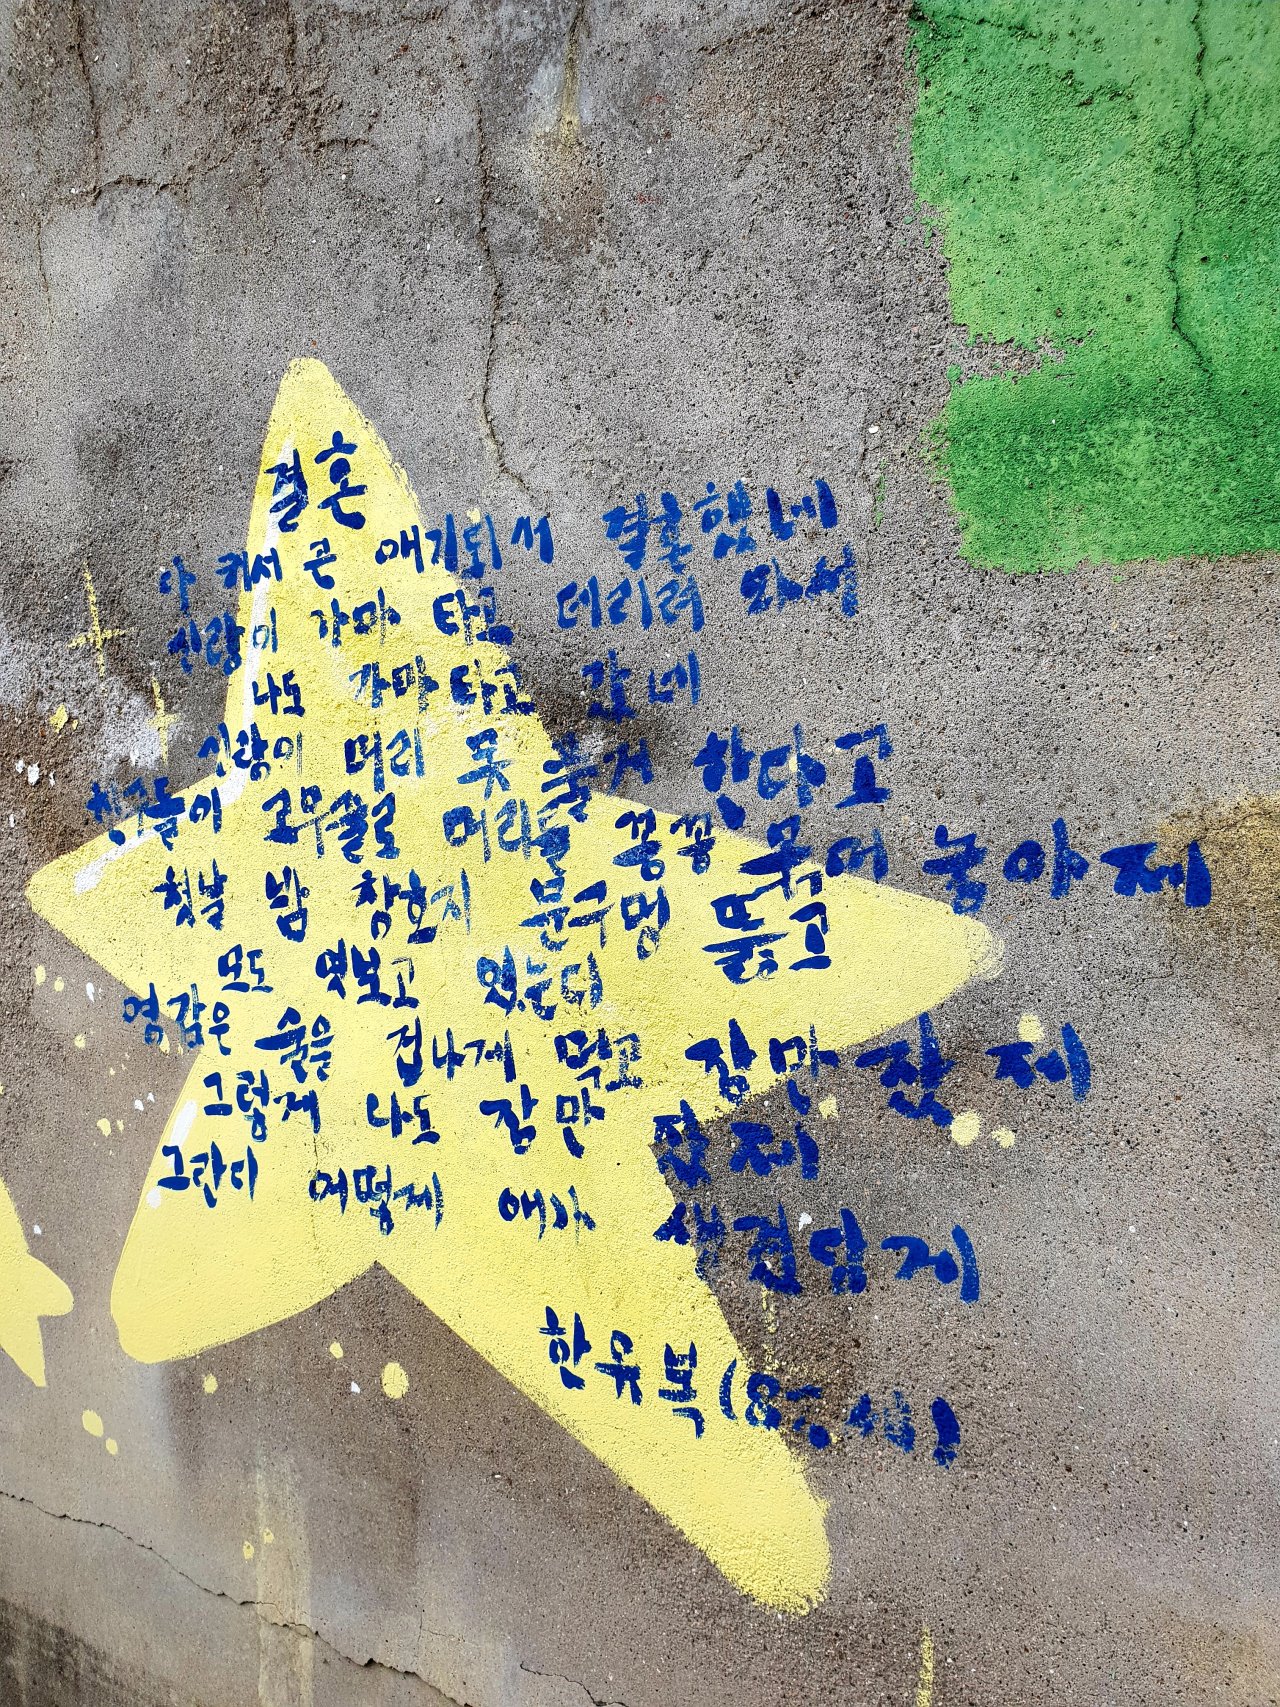 결혼
다 커서 큰 애기되서 결혼했네
신랑이 가마 타고 데리려 와서
나도 가마 타고 갔네
신랑이 머리 못 풀게 한다고
친구들이 고무줄로 머리를 꽁꽁 묶어 놓아제
첫날 밤 창호지 문구멍 뚫고
모도 엿보고 있는디
영감은 술을 겁나게 먹고 잠만 잤제
그렇게 나도 잠만 잤제
그란디 어떻게 애가 생겼담제
한유복 (8 세)